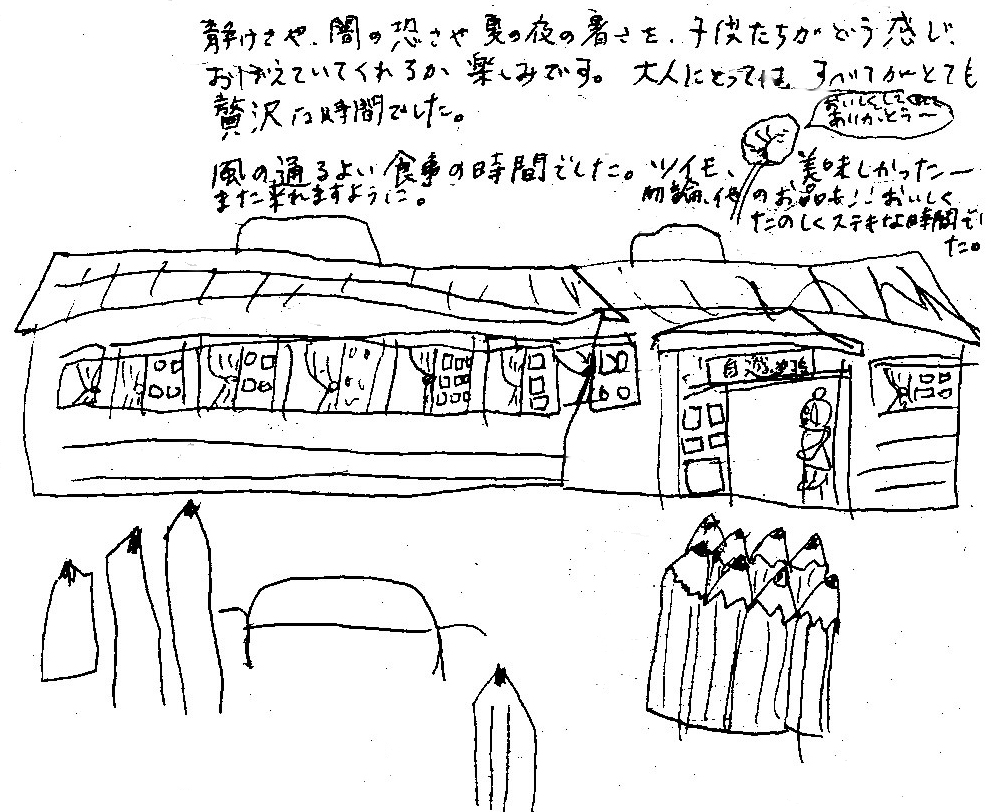 静けさや、闇の恐さや夏の夜の暑さを、子供たちがどう感じ、
おぼえていてくれるか 楽しみです。 大人にとっては、すべてがとても
贅沢な時間でした。
おいしくしてくれて
ありがとう〜
風の通るよい食事の時間でした。ツイモ、美味しかったー
また来れますように。
勿論、他のお品も!! おいしく
たのしくステキな時間でし
た。
自遊